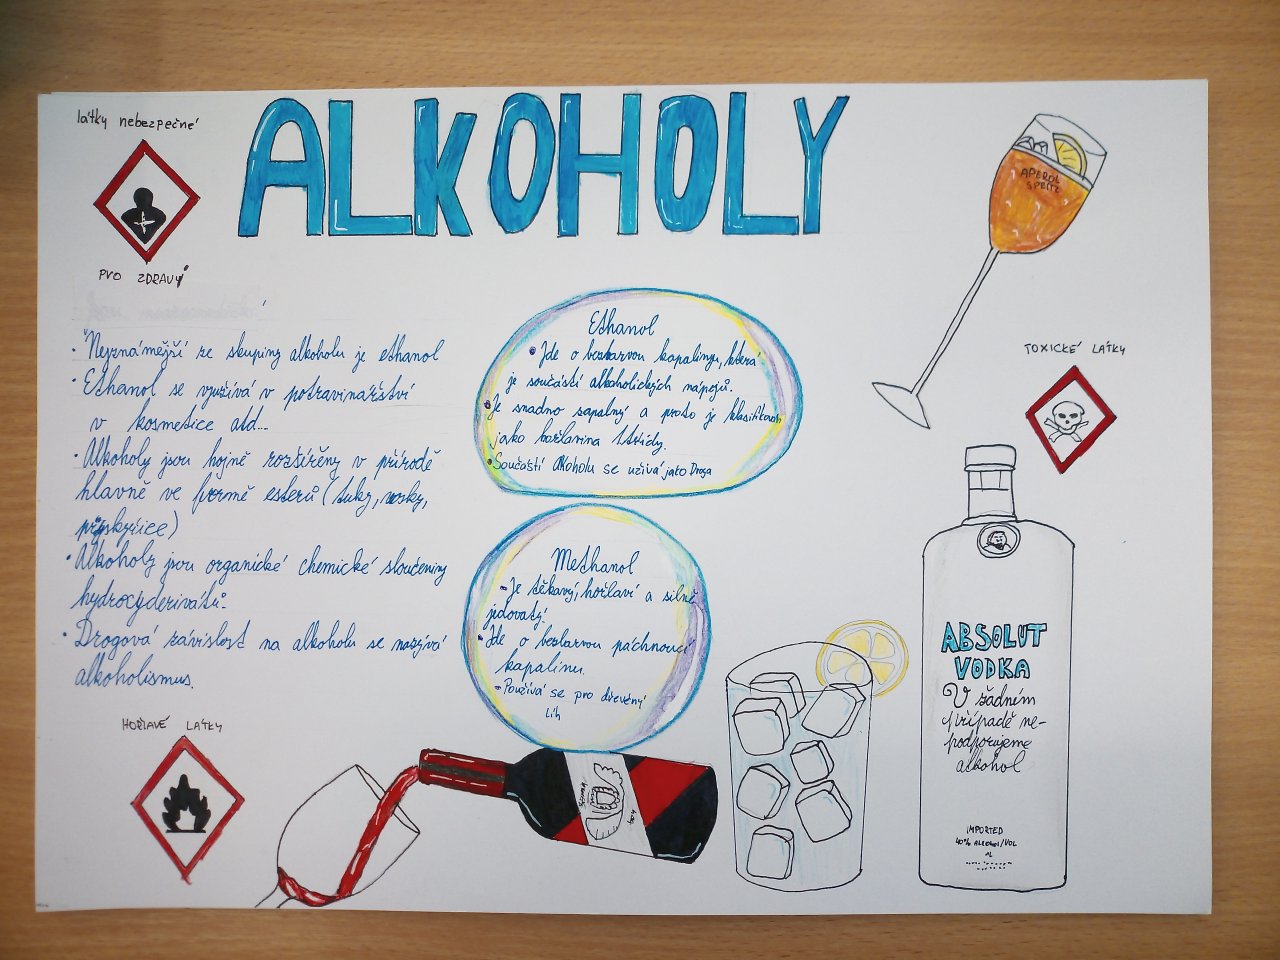 ALKOHOLY
látky nebezpečné
PRO ZDRAVÍ
• Nejznámější ze skupiny alkoholu je ethanol
• Ethanol se využívá v potravinářství
v kosmetice atd...
• Alkoholy jsou hojně rozšířeny v přírodě
hlavně ve formě esterů (tuky, vosky,
pryskyřice)
• Alkoholy jsou organické chemické sloučeniny
hydroxyderivátů.
• Drogová závislost na alkoholu se nazývá
alkoholismus.
HOŘLAVÉ LÁTKY
Ethanol
• Jde o bezbarvou kapalinu, která
je součástí alkoholických nápojů.
• Je snadno zápalný a proto je klasifikován
jako hořlavina 1. třídy.
• Součástí Alkoholu se užívá jako Droga
Methanol
• Je těkavý, hořlaví a silně
jedovatý.
• Jde o bezbarvou páchnoucí
kapalinu.
• Používá se pro dřevěný
líh
APEROL
SPRITZ
TOXICKÉ LÁTKY
ABSOLUT
VODKA
V žádném
případě ne-
podporujeme
alkohol
IMPORTED
40% ALKOHOL/VOL
1L